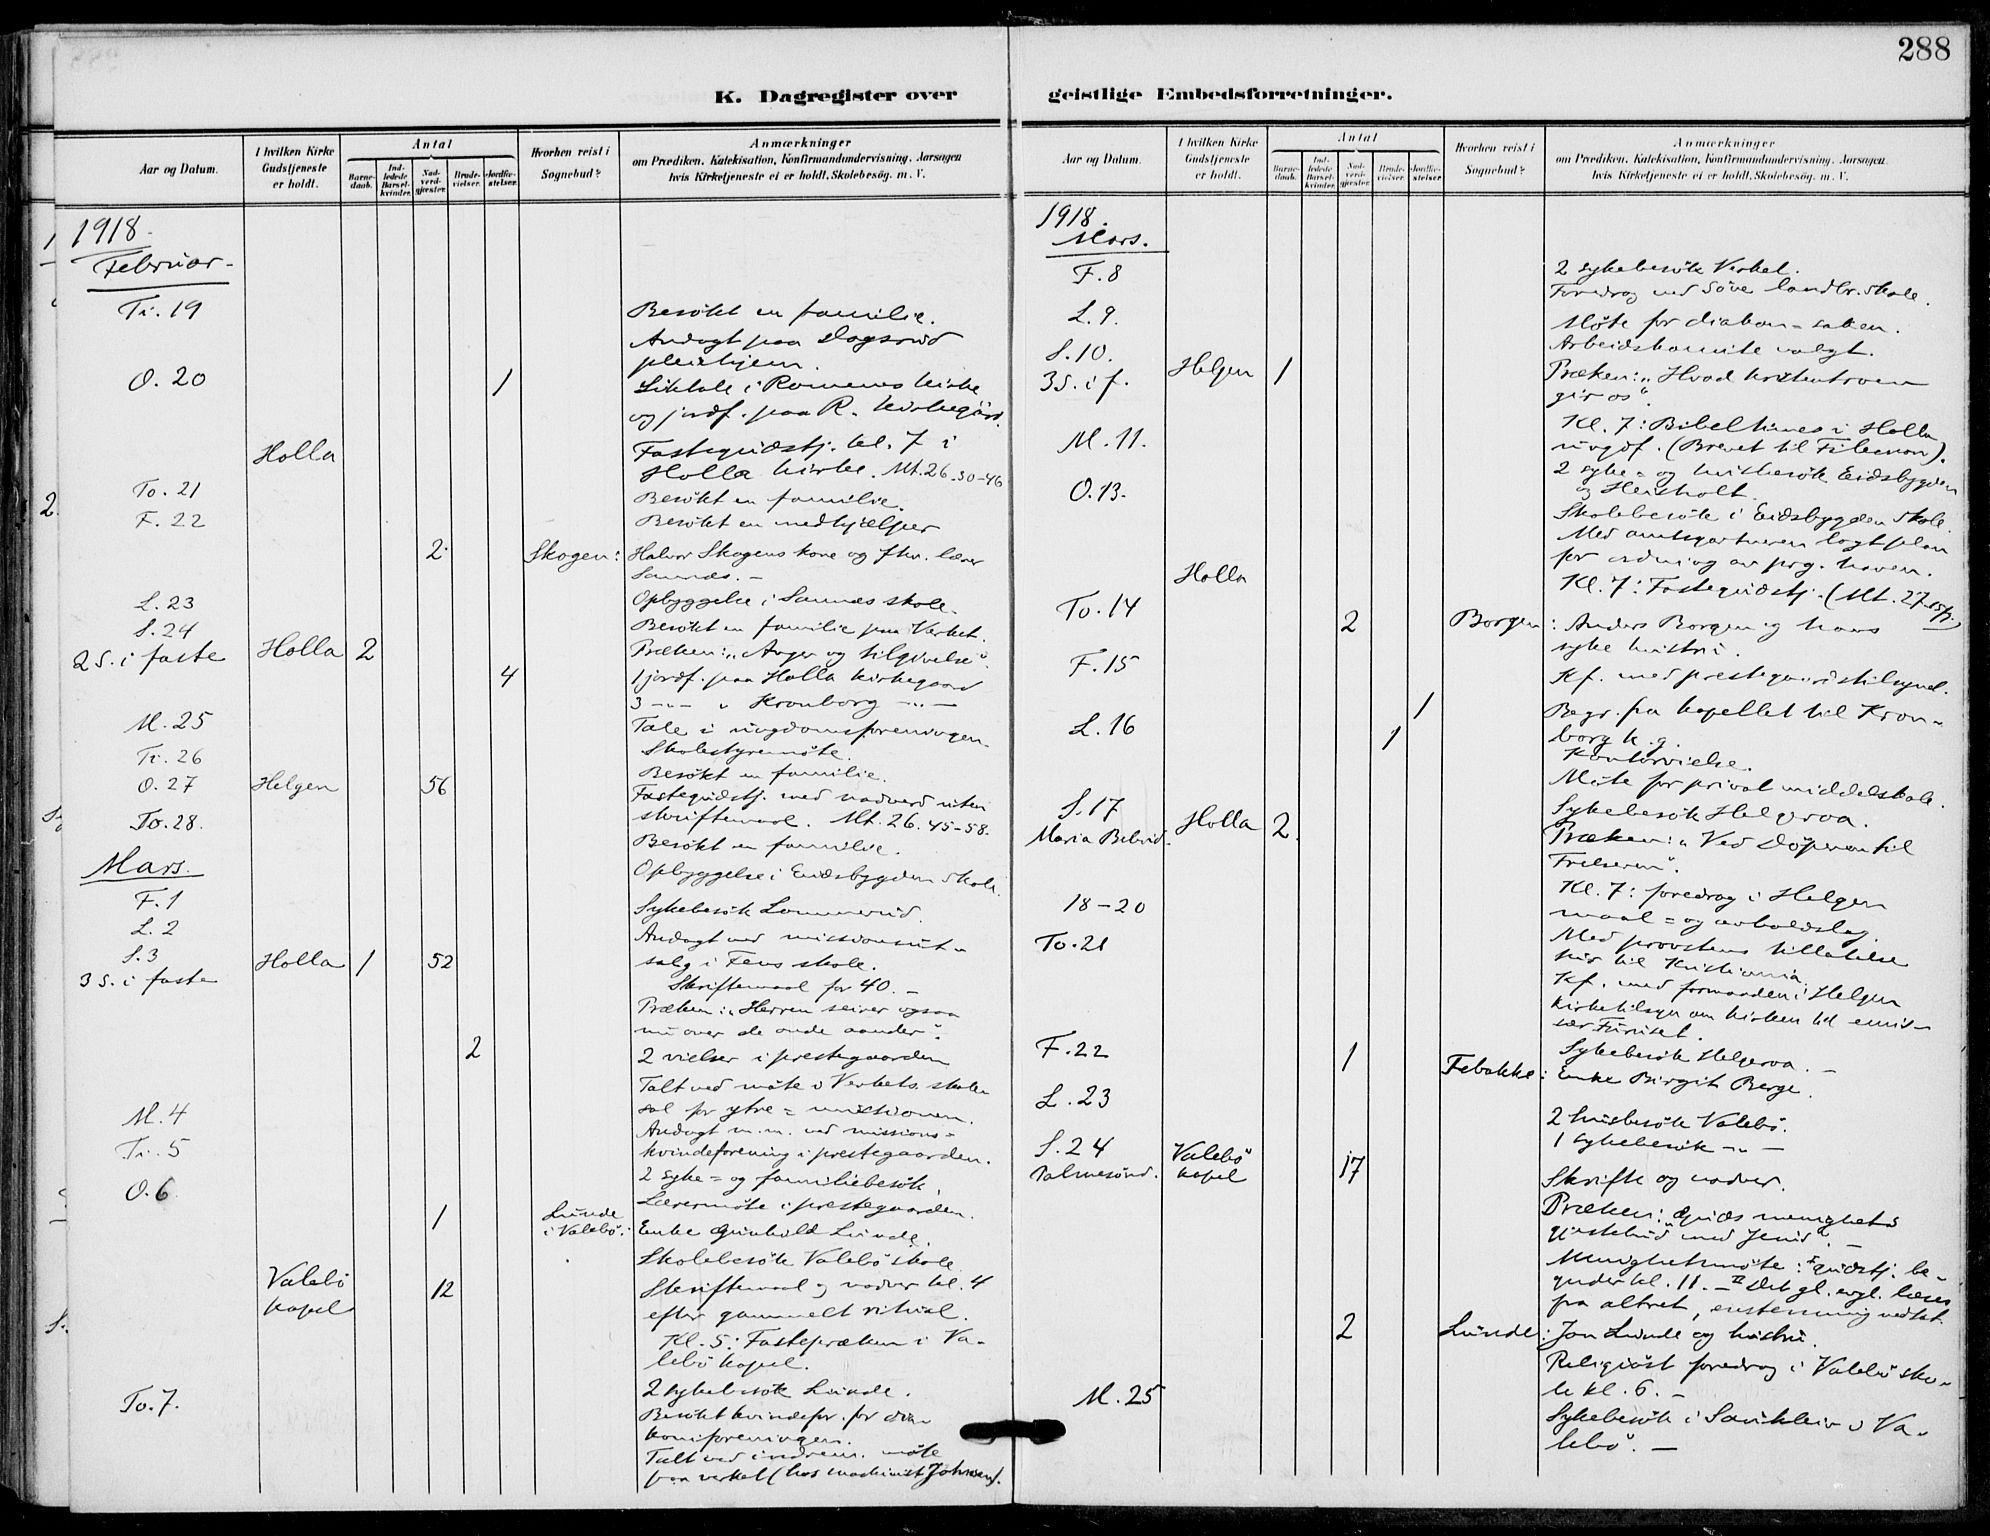 288
K. Dagregister over
Aar og Datum.
I hvilken Kirke Gudstjeneste er holdt.
Antal
Barnedaab.
Indledede Barselkvinder.
Nadverdgjester.
Brudevielser.
Jordfæstelser.
Hvorhen reist i Sognebud?
Anmærkninger
om Prædiken, Katekisation, Konfirmandundervisning, Aarsagen
hvis Kirketjeneste ei er holdt, Skolebesøg. m. V.
1918.
Februar
Ti. 19 Besökt en familie.
Andagt paa Dagsrud
pleiehjem.
O. 20 1 Liktale i Romenes kirke
og jordf. paa R. kirkegård.
Holla Fastegudstj. kl. 7 i
Holla kirke. Mt. 26. 30-46
To. 21 Besökt en familie.
F. 22 Besökt en medhjælper
2 Skogen: Halvor Skogens kone og fhv. lærer
Sannes. -
L. 23 Opbyggelse i Sannes skole.
S. 24 Besökt en familie paa Verket.
2 S. i faste Holla 2 Præken: "Anger og tilgivelse".
4 1 jordf. paa Holla kirkegaard
3 -"- " Kronborg -"-
M. 25 Tale i ungdomsforeningen.
Ti. 26 Skolestyremöte.
O. 27 Helgen 56 Besökt en familie.
Fastegudstj. med nadverd uten
To. 28. skriftemaal. Mt. 26. 45-58.
Besökt en familie.
Mars. Opbyggelse i Eidsbygden skole.
F. 1 Sykebesök Lonnerud.
L. 2 Andagt ved missionsut-
S. 3 Holla 1 52 salg i Fens skole.
3 S. i faste Skriftemaal for 40. -
Præken: "Herren seirer ogsaa
nu over de onde aander".
2 2 vielser i prestegaarden
Talt ved möte i Verkets skole
M. 4 sal for ytre = missionen.
Andagt m. m. ved missions-
Ti. 5 kvindeforening i prestegaarden.
2 syke = og familiebesök.
O. 6 Lærermöte i prestegaarden.
1 Lunde
i Valebö: Enke Gunhold Lunde.
Skolebesök Valebö skole
Valebö 12 Skriftemaal og nadver kl. 4
kapel efter gammelt ritual.
Kl. 5: Fastepræken i Va-
lebö kapel.
To. 7. 2 sykebesök Lunde.
Besökt kvindefor. for
foreningen.
Talt ved indrem. möte
paa verket (hos maskinist Johnsen).
geistlige Embedsforretninger.
Aar og Datum.
I hvilken Kirke Gudstjeneste er holdt.
Antal
Barnedaab.
Indledede Barselkvinder.
Nadverdgjester.
Brudevielser.
Jordfæstelser.
Hvorhen reist i Sognebud?
Anmærkninger
om Prædiken, Katekisation, Konfirmandundervisning, Aarsagen
hvis Kirketjeneste ei er holdt, Skolebesøg. m. V.
1918.
Mars.
F. 8 2 sykebesök Verket.
Foredrag ved Söve landbr. skole.
L. 9. Möte for diakon = saken.
S. 10. Arbeidskomite valgt.
3 S. i f. Helgen 1 Præken: "Hvad kristentroen
gir os".
M. 11. Kl. 7: Bibeltimes i Holla
ungdf. (Brevet til Filemon).
O. 13. 2 syke = og husbesök Eidsbygden
og Heisholt.
Skolebesök i Eidsbygden skole.
Med amtsgartneren lagt plan
for ordning av prg. haven.
Holla Kl. 7: Fastegudstj. (Mt. 27
To. 14 2 Borgen: Anders Borgen og hans
syke hustru.
F. 15 Kf. med prestegaardstilsynet.
1 Begr. fra kapellet til Kron-
L. 16 borg k. g.
1 Kontorvielse.
Möte for privat middelskole.
S. 17 Sykebesök Helgeroa.
Maria Bebud. Holla 2. Præken: "Ved döperen til
Frelseren".
18-20 Kl. 7: foredrag i Helgen
maal = og avholdslag.
To. 21 Med provstens tillatelse
til Kristiania.
Kf. med formanden i Helgen
kirketilsyn om kirken til emis-
sær Furuset.
F. 22 Sykebesök Helgeroa. -
1 Febakke: Enke Birgit Berge.
L. 23 2 husbesök Valebö.
1 sykebesök -"-
S. 24 Valebö 17 Skrifte og nadver.
Palmesönd. kapel Præken: Guds menighets
gjestebud med Jesus". -
Menighetsmöte: I gudstj. be-
gynder kl. 11. - II Det gl. evgl. læses
fra altret, enstemmig vedtat.
2 Lunde: Jon Lunde og hustru.
Religiöst foredrag i Valebö sko-
M. 25 le kl. 6. -
Sykebesök i Saukleiv i Va-
lebö. -